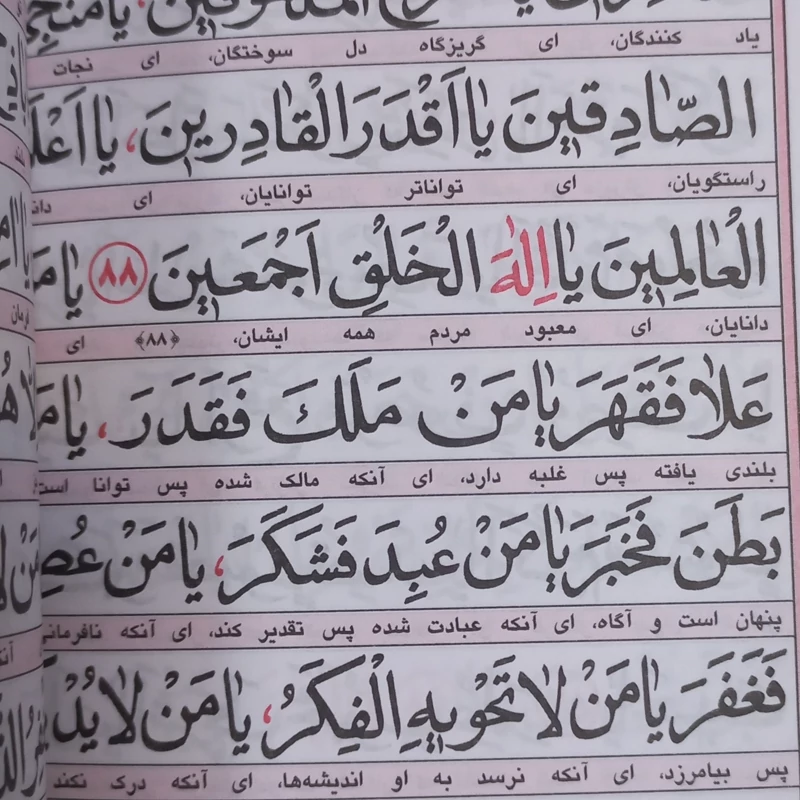 یاد کنندگان، ای گریزگاه دل سوختگان، ای نجات
الصّٰادِقینَ یٰا اَقْدَرَ الْقٰادِرینَ، یٰا اَعْلَ
راستگویان، ای تواناتر توانایان، ای
الْعٰالِمینَ یٰا اِلٰهَ الْخَلْقِ اَجْمَعینَ ۸۸ یٰا مَ
دانایان، ای معبود مردم همه ایشان، ﴿۸۸﴾ ای
عَلٰا فَقَهَرَ یٰا مَنْ مَلَکَ فَقَدَرَ، یٰا مَ
بلندی یافته پس غلبه دارد، ای آنکه مالک شده پس توانا است
بَطَنَ فَخَبَرَ یٰا مَنْ عُبِدَ فَشَکَرَ، یٰا مَنْ عُصِ
پنهان است و آگاه، ای آنکه عبادت شده پس تقدیر کند، ای آنکه نافرمانی
فَغَفَرَ یٰا مَنْ لٰا تَحْویهِ الْفِکَرُ، یٰا مَنْ لٰا یُدْ
پس بیامرزد، ای آنکه نرسد به او اندیشه‌ها، ای آنکه درک نکند